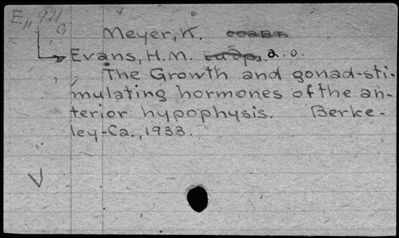 E,, 921
a
Meyer, K.
Evans, H.M. a.o.
The Growth and gonad-sti-
mulating hormones of the an-
terior hypophysis. Berke-
ley-Ca., 1933.
V